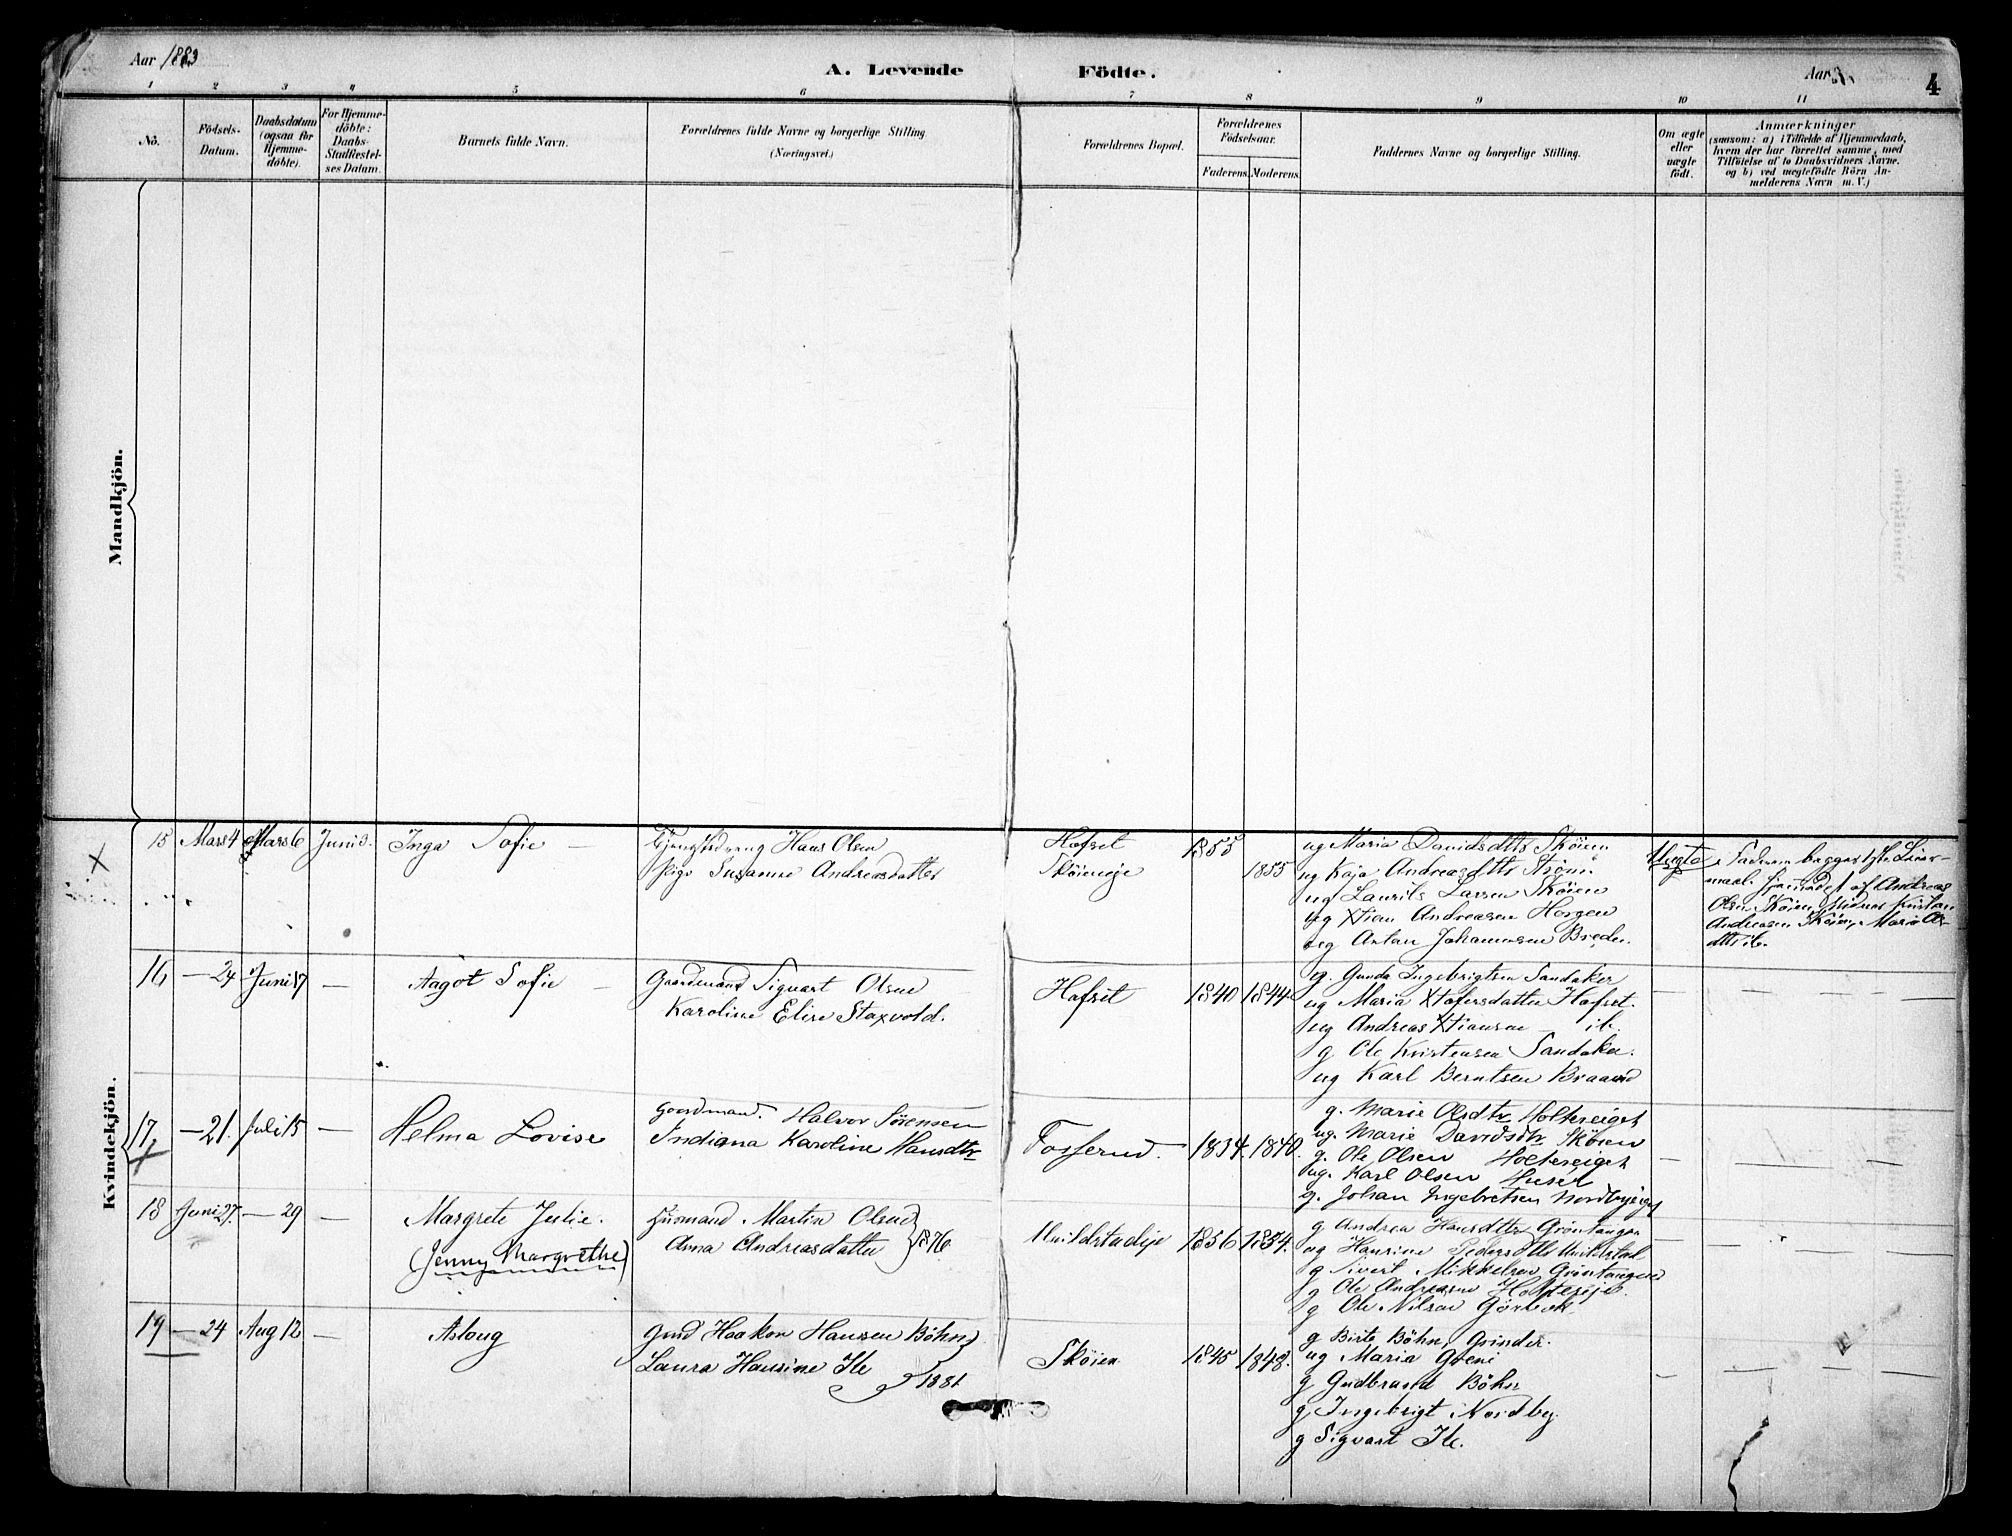 Aar 1883
A. Levende Födte.
Aar
4
1 2 3 4 5 6 7 8 9 10 11
No.
Födsels-Datum.
Daabsdatum (ogsaa for Hjemmedöbte).
For Hjemmedöbte: Daabs-Stadfæstelses Datum.
Barnets fulde Navn.
Forældrenes fulde Navne og borgerlige Stilling
(Næringsvei.)
Forældrenes Bopæl.
Forældrenes Födselsaar.
Faderens. Moderens.
Faddernes Navne og borgerlige Stilling.
Om ægte eller uægte födt.
Anmærkninger
(saasom: a) i Tilfælde af Hjemmedaab,
hvem der har forrettet samme, med
Tilföielse af to Daabsvidners Navne.
og b) ved uægtefödte Börn An-
melderens Navn m. V.)
Mandkjön.
Kvindekjön.
15 Mars 4 Mars 6 Juni 3. Inga Sofie —
Hans Olsen
Pige Susanne Andreasdatter
Hafset
Skøieneje
1855
1855
ug Maria Davidsdtr Skøien
ug Kaja Andreasdtr Strøm.
ug Laurits Larsen Skøien
ug Xtian Andreasen Horgen
ug Anton Johannesen Breden.
Uægte
Andreas
Olsen Skøien
Andreasen Skøien, Maria Ols-
dtr ib.
16 — 24 Juni 17 — Aagot Sofie —
Gaardmand Sigvart Olsen
Karoline Elise Staxvold.
Hafset 1840 1844
g. Gunda Ingebrigtsen Sandaker
ug Maria Xtofersdatter Hafset.
ug Andreas Xtiansen — ib.
g Ole Kristensen Sandaker.
ug Karl Berntsen Braand
17 — 21. Juli 15 — Helma Lovise
Goardmand. Halvor Sørensen
Indiana Karoline Hansdtr
Fosserud. 1834. 1840.
g. Marie Olsdtr Holtereiget
ug. Marie Davidsdtr Skøien
g. Ole Olsen Holtereiget
ug. Karl Olsen Huset
g. Johan Ingebretsen Nordbyeiget
18 Juni 27. — 29 — Margrete Julie.
(Jenny Margrethe)
Husmand Martin Olsen
Anna Andreasdatter } 1876
1856 1854.
g Andrea Hansdtr Grøntangen
ug Hansine Pedersdtr
g Sivert Mikkelsen Grøntangen
g Ole Andreasen
g Ole Nilsen
19 — 24 Aug 12 — Aslaug
Gmd Haakon Hansen Böhn
Laura Hansine Ile } 1881
Skøien 1845 1848.
g Birte Böhn, Grinder.
ug Maria Goeni
g Gudbrand Böhn
g Ingebrigt Nordby
g Sigvart Ile.